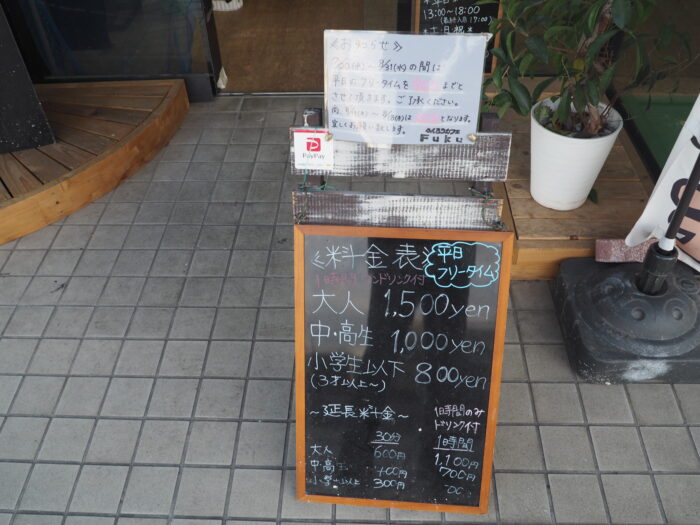 13:00〜18:00
《お知らせ》
の間は
平日にフリータイムを までと
させて頂きます。ご了承ください。
となります。
宜しくお願い致します。
Fuku
PayPay
《料金表》
平日
フリータイム
1時間 ンドリンク付
大人 1,500yen
中・高生 1,000yen
小学生以下 800yen
(3才以上〜)
〜延長料金〜
1時間のみ
ドリンク付
30分 1時間
大人 600円 1,100円
中・高生 400円 700円
小学生以上 300円